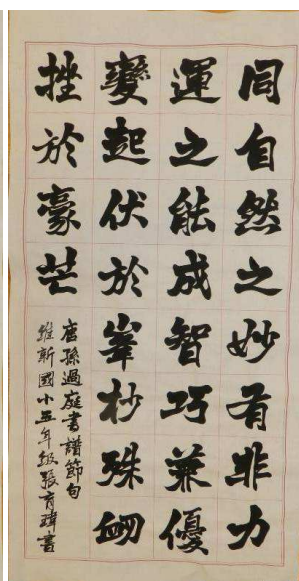 同自然之妙有非力
運之能成智巧兼優
變起伏於峯杪殊衂
挫於豪芒
唐孫過庭書譜節句
維新國小五年級張育瑋書